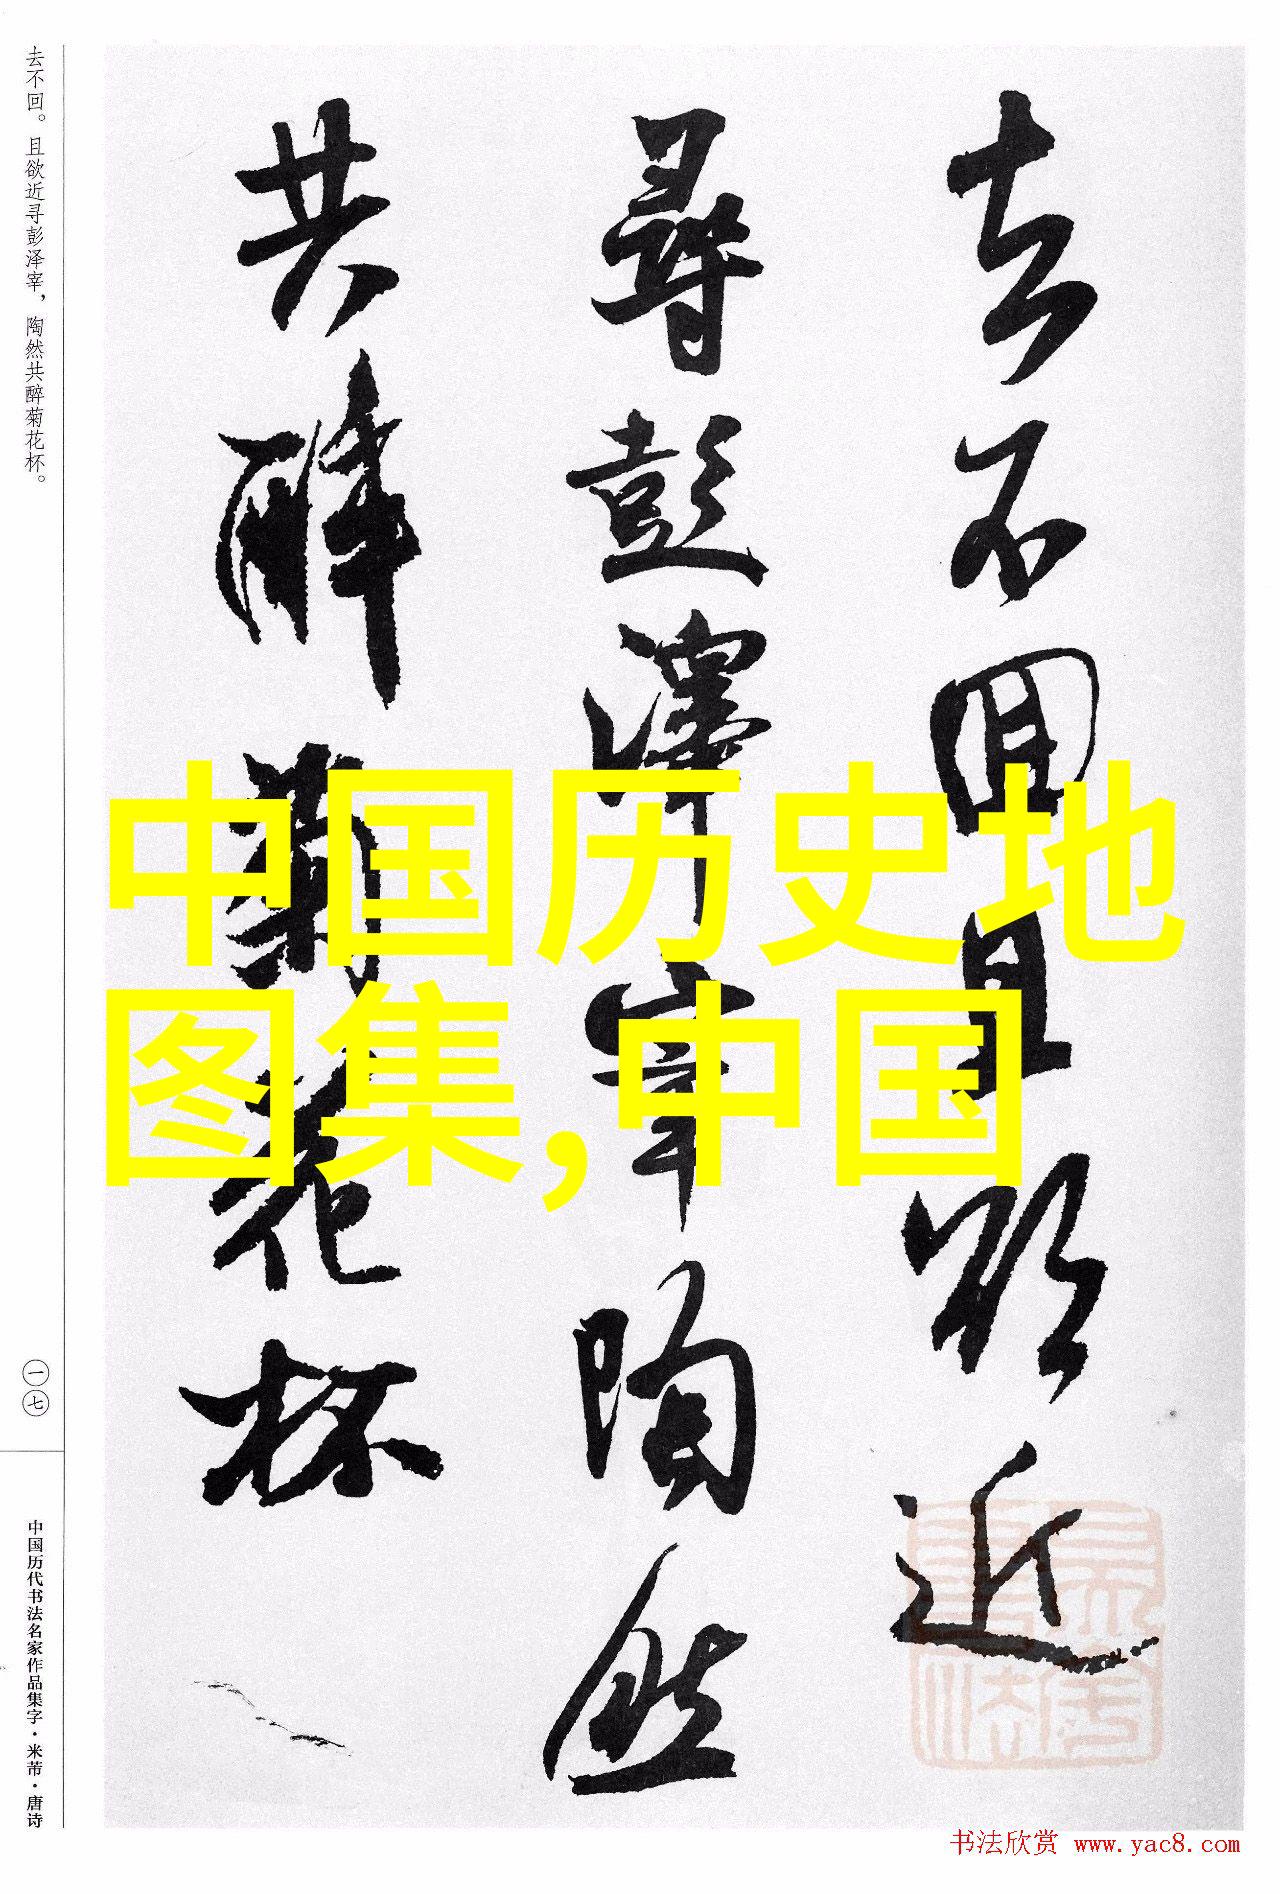 去不回且欲近
尋彭澤宰陶然
共醉菊花杯
去不回。且欲近寻彭泽宰，陶然共醉菊花杯。
一七
中国历代书法名家作品集字·米芾·唐诗
中国历史地
图集,中国
书法欣赏 www.yac8.com